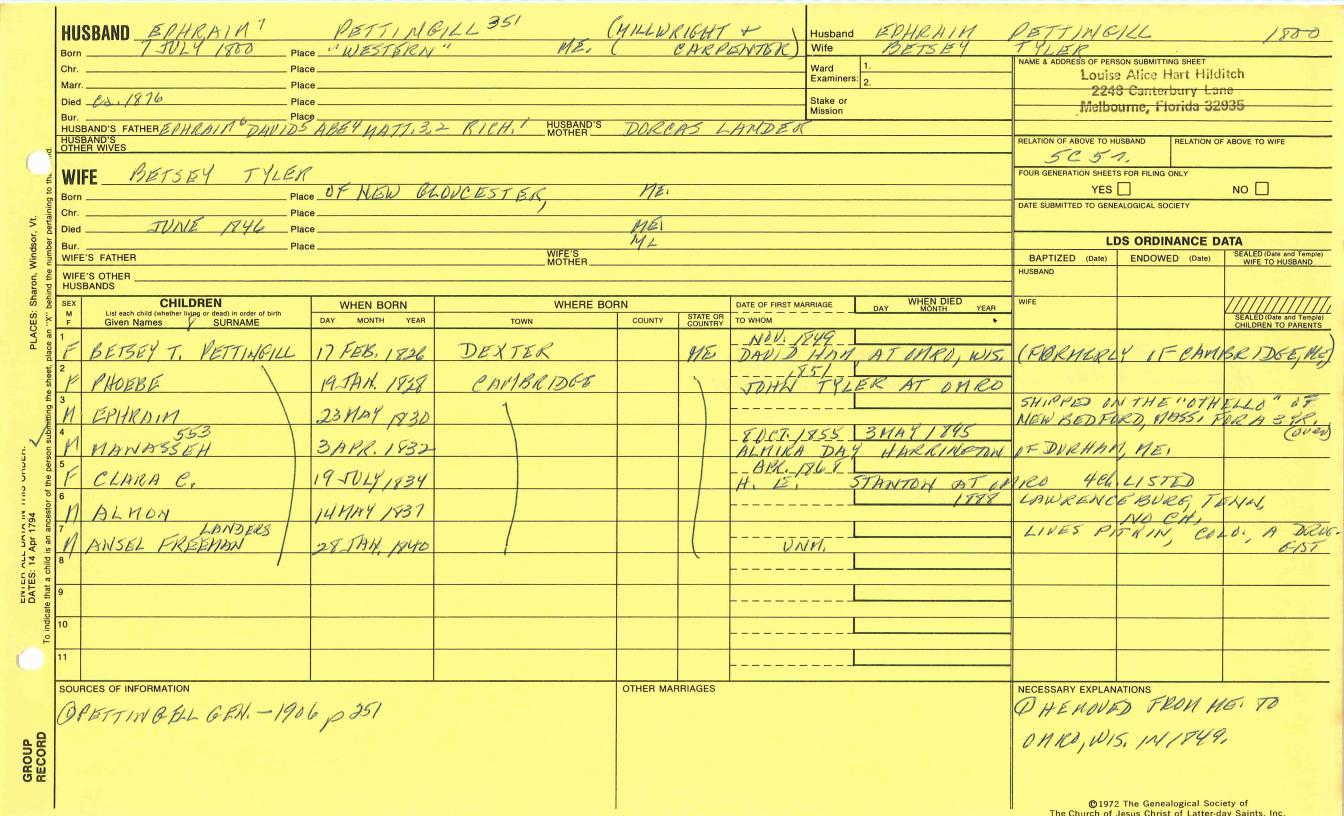 HUSBAND EPHRAIM 7 PETTINGILL 351 (MILLWRIGHT + CARPENTER)
Born 7 JULY 1800 Place "WESTERN" ME.
Chr. Place
Marr. Place
Died ca. 1876 Place
Bur. Place
HUSBAND'S FATHER EPHRAIM 6 DAVID 5 ABE 4 MATT. 3, 2 RICH. 1 HUSBAND'S MOTHER DORCAS LANDER
HUSBAND'S OTHER WIVES
Husband EPHRAIM PETTINGILL 1800
Wife BETSEY TYLER
Ward Examiners: 1.
2.
Stake or Mission
NAME & ADDRESS OF PERSON SUBMITTING SHEET
Louise Alice Hart Hilditch
2248 Canterbury Lane
Melbourne, Florida 32935
RELATION OF ABOVE TO HUSBAND RELATION OF ABOVE TO WIFE
5C 5r.
FOUR GENERATION SHEETS FOR FILING ONLY
YES NO
DATE SUBMITTED TO GENEALOGICAL SOCIETY
WIFE BETSEY TYLER
Born Place OF NEW GLOUCESTER, ME.
Chr. Place
Died JUNE 1846 Place ME.
Bur. Place ME
WIFE'S FATHER WIFE'S MOTHER
WIFE'S OTHER HUSBANDS
LDS ORDINANCE DATA
BAPTIZED (Date) ENDOWED (Date) SEALED (Date and Temple) WIFE TO HUSBAND
HUSBAND
WIFE
SEALED (Date and Temple) CHILDREN TO PARENTS
SEX M F CHILDREN WHEN BORN WHERE BORN DATE OF FIRST MARRIAGE WHEN DIED
List each child (whether living or dead) in order of birth
Given Names SURNAME DAY MONTH YEAR TOWN COUNTY STATE OR COUNTRY TO WHOM DAY MONTH YEAR
1 F BETSEY T. PETTINGILL 17 FEB. 1826 DEXTER ME NOV. 1849 DAVID HAM, AT OMRO, WIS. (FORMERLY OF CAMBRIDGE, ME.)
2 F PHOEBE 19 JAN. 1828 CAMBRIDGE 1851 JOHN TYLER AT OMRO
3 M EPHRAIM 23 MAY 1830 SHIPPED ON THE "OTHELLO" OF NEW BEDFORD, MASS. FOR A 3 YR. (over)
4 M MANASSEH 553 3 APR. 1832 8 OCT. 1855 3 MAY 1895 ALMIRA DAY HARRINGTON OF DURHAM, ME.
5 F CLARA C. 19 JULY 1834 APR. 1868 H. E. STANTON AT OMRO 4ch LISTED
6 M ALMON 14 MAY 1837 1888 LAWRENCEBURG, TENN. NO CH.
7 M ANSEL FREEMAN LANDERS 28 JAN. 1840 UNM. LIVES PITKIN, COLO., A DRUGGIST
8
9
10
11
SOURCES OF INFORMATION
① PETTINGELL GEN. - 1906 p 251
OTHER MARRIAGES
NECESSARY EXPLANATIONS
① HE MOVED FROM ME. TO
OMRO, WIS. IN 1849.
©1972 The Genealogical Society of
The Church of Jesus Christ of Latter-day Saints, Inc.
PLACES: Sharon, Windsor, Vt.
ENTER ALL DATA IN THIS ORDER:
DATES: 14 Apr 1794
To indicate that a child is an ancestor of the person submitting the sheet, place an "X" behind the number pertaining to
GROUP
RECORD